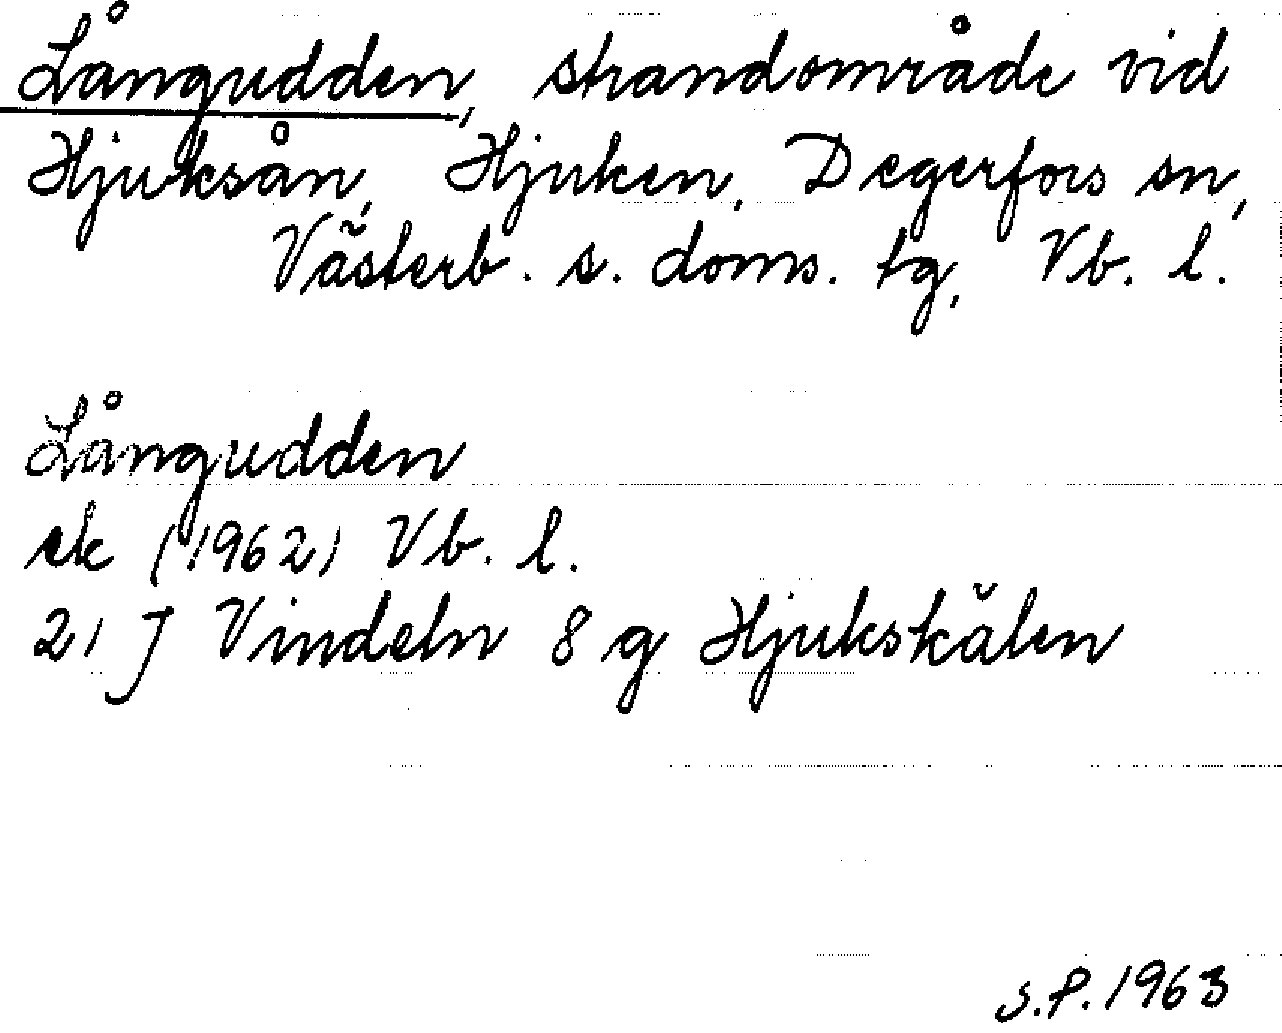 Långudden, strandområde vid
Hjuksån, Hjuken, Degerfors sn,
Västerb. s. doms. tg, Vb. l.
Långudden
ek (1962) Vb. l.
21 J Vindeln 8 g Hjukskälen
S.P. 1963